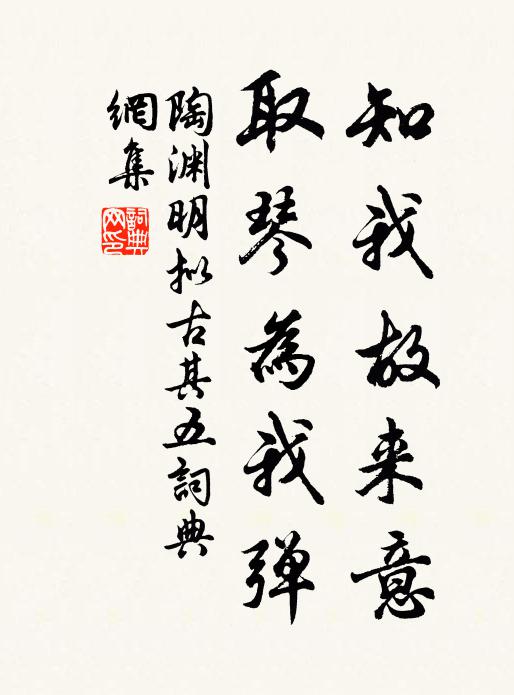 知我故来意
取琴為我弹
陶渊明拟古其五詞典
網集
詞典
网印